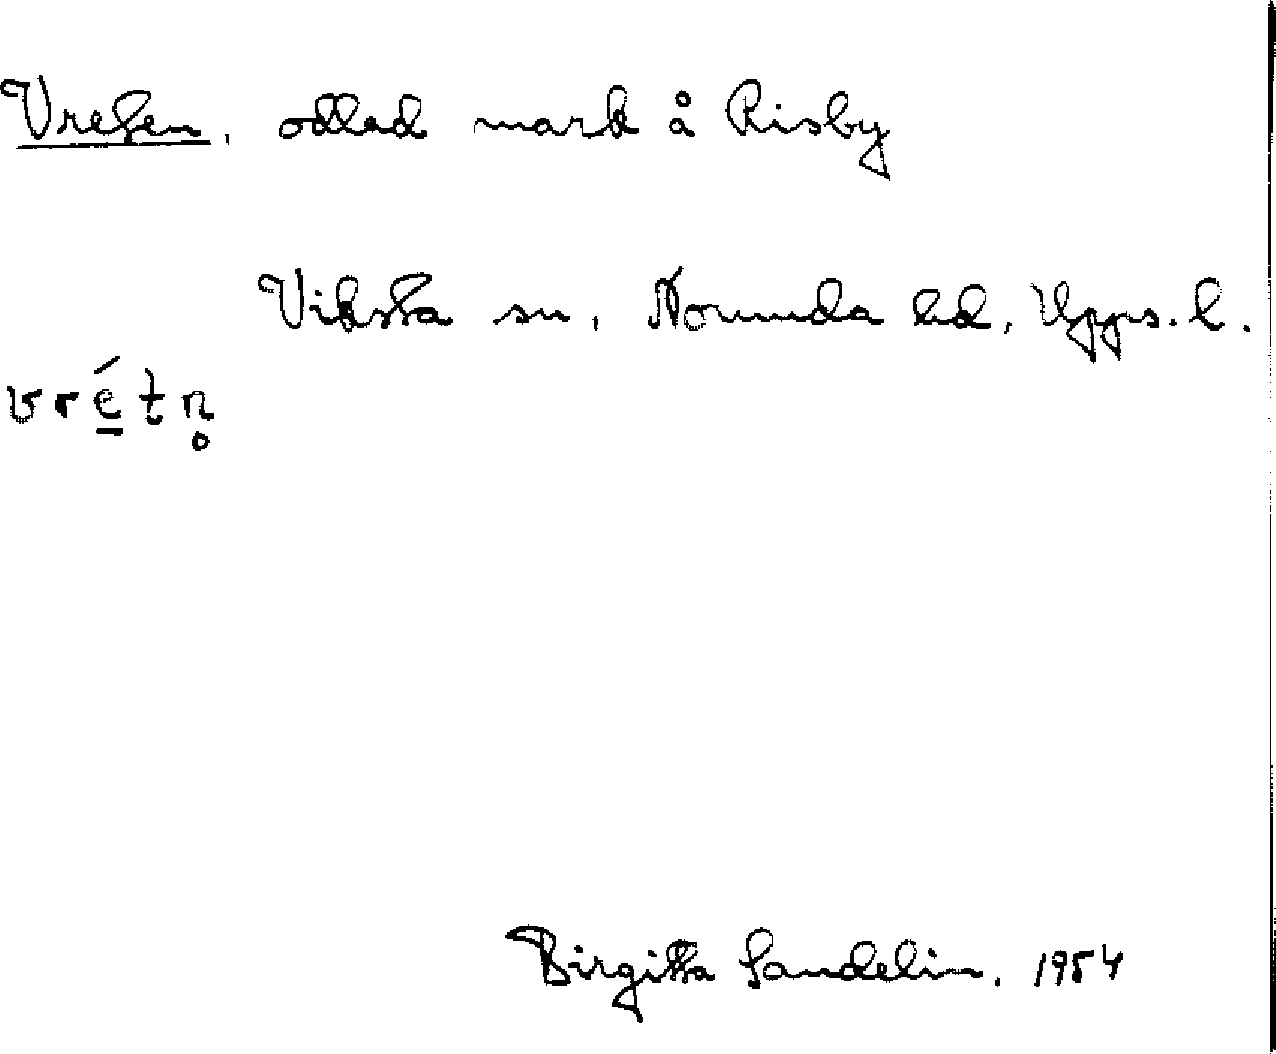 Vreten, odlad mark å Risby
Viksta sn, Norunda hd, Upps. l.
vré̱tn̥
Birgitta Sandelin, 1954